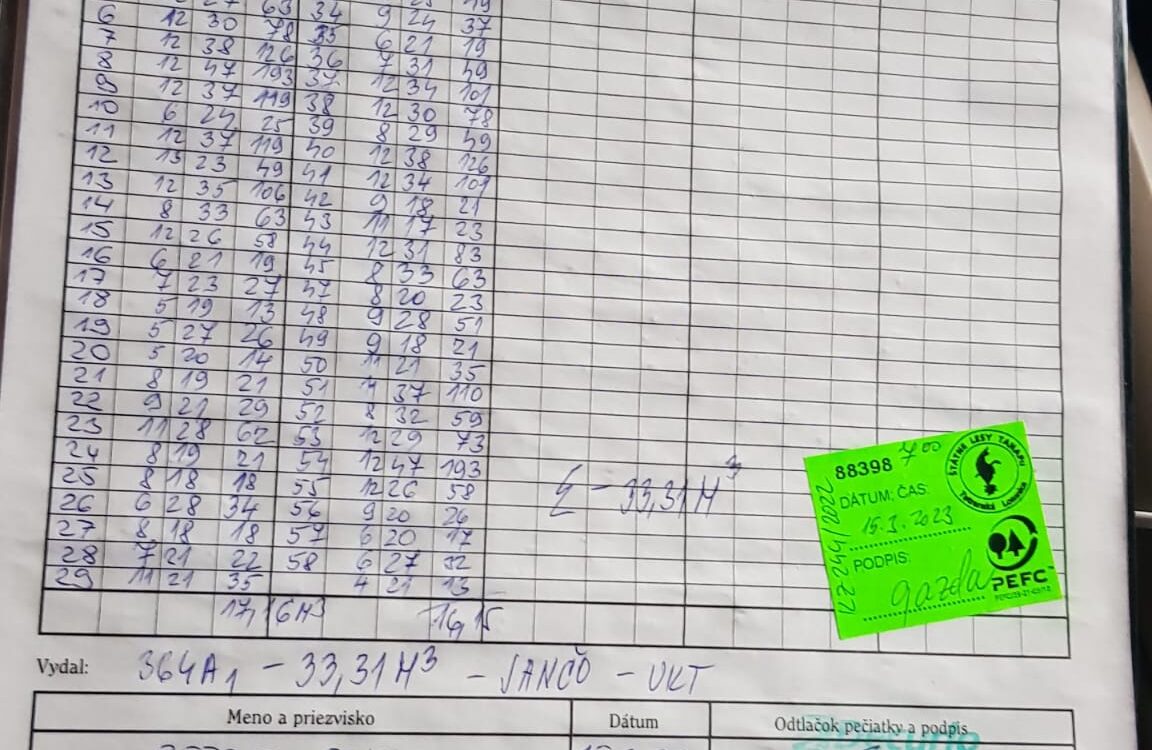 63 34 9 24 37
6 12 30 78 35 6 21 19
7 12 38 126 36 7 31 49
8 12 47 193 37 12 34 101
9 12 37 119 38 12 30 78
10 6 24 25 39 8 29 49
11 12 37 119 40 12 38 126
12 13 23 49 41 12 34 101
13 12 35 106 42 9 18 21
14 8 33 63 43 11 17 23
15 12 26 58 44 12 31 83
16 6 21 19 45 8 33 63
17 7 23 27 47 8 20 23
18 5 19 13 48 9 28 51
19 5 27 26 49 9 18 21
20 5 20 14 50 11 21 35
21 8 19 21 51 11 37 110
22 9 21 29 52 8 32 59
23 11 28 62 53 12 29 73
24 8 19 21 54 12 47 193
25 8 18 18 55 12 26 58
26 6 28 34 56 9 20 26
27 8 18 18 57 6 20 17
28 7 21 22 58 6 27 32
29 11 21 35 4 21 13
17,16M3 16,15
Σ - 33,31M3
88398 700
DÁTUM: ČAS:
15.3.2023
PODPIS:
gazda
ŠTÁTNE LESY TANAPU
Tatranská Lomnica
PEFC
Vydal: 364A1 - 33,31M3 - JANČO - UKT
Meno a priezvisko Dátum Odtlačok pečiatky a podpis